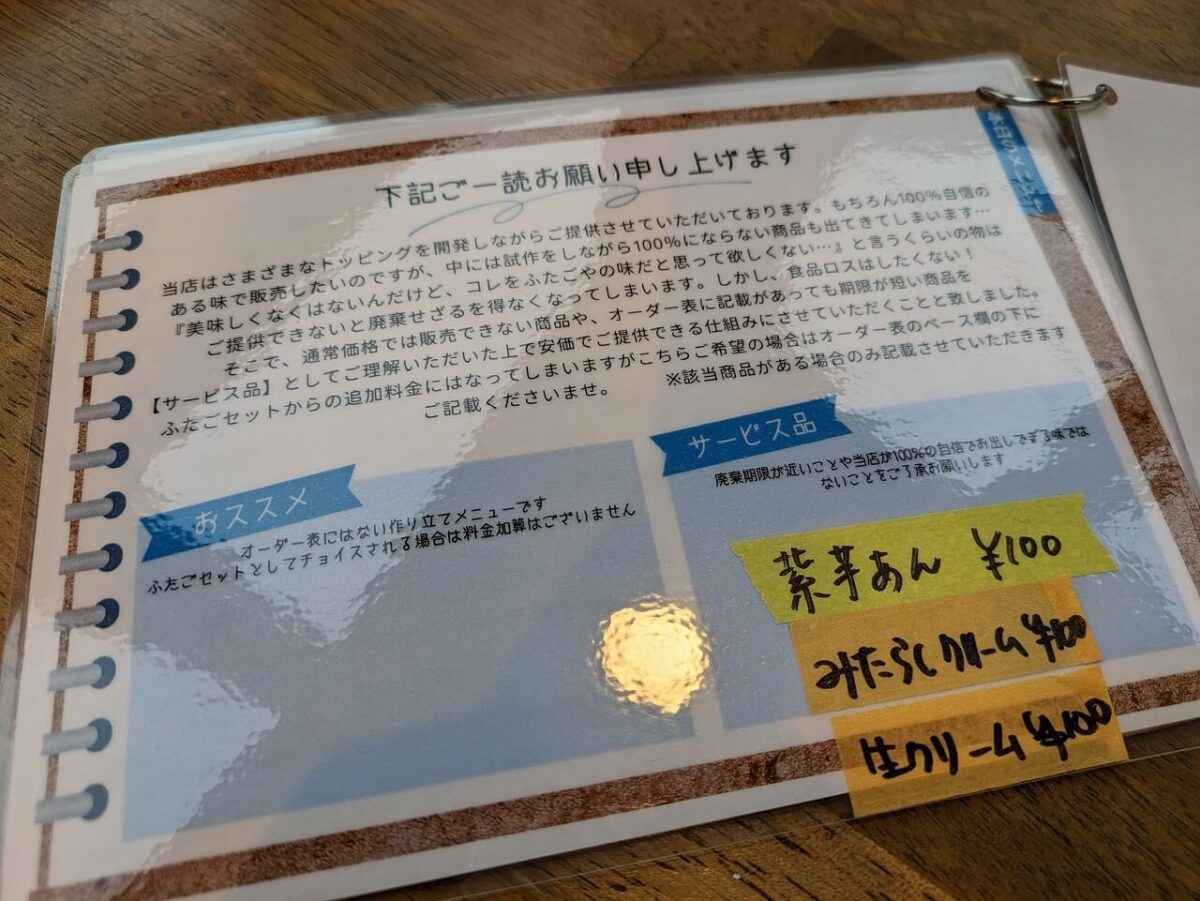 本日のメニュー
下記ご一読お願い申し上げます
当店はさまざまなトッピングを開発しながらご提供させていただいております。もちろん100%自信の
ある味で販売したいのですが、中には試作をしながら100%にならない商品も出てきてしまいます…
『美味しくなくはないんだけど、コレをふたごやの味だと思って欲しくない…』と言うくらいの物は
ご提供できないと廃棄せざるを得なくなってしまいます。しかし、食品ロスはしたくない！
そこで、通常価格では販売できない商品や、オーダー表に記載があっても期限が短い商品を
【サービス品】としてご理解いただいた上で安価でご提供できる仕組みにさせていただくことと致しました。
ふたごセットからの追加料金にはなってしまいますがこちらご希望の場合はオーダー表のベース欄の下に
ご記載くださいませ。 ※該当商品がある場合のみ記載させていただきます
おススメ
オーダー表にはない作り立てメニューです
ふたごセットとしてチョイスされる場合は料金加算はございません
サービス品
廃棄期限が近いことや当店が100%の自信でお出しできる味では
ないことをご了承お願いします
紫芋あん ¥100
みたらしクリーム ¥100
生クリーム ¥100